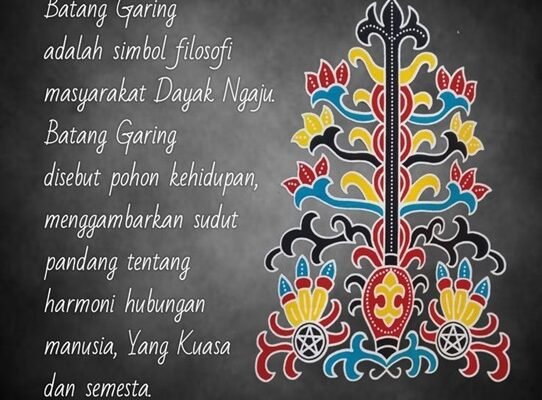 Batang Garing
adalah simbol filosofi
masyarakat Dayak Ngaju.
Batang Garing
disebut pohon kehidupan,
menggambarkan sudut
pandang tentang
harmoni hubungan
manusia, Yang Kuasa
dan semesta.